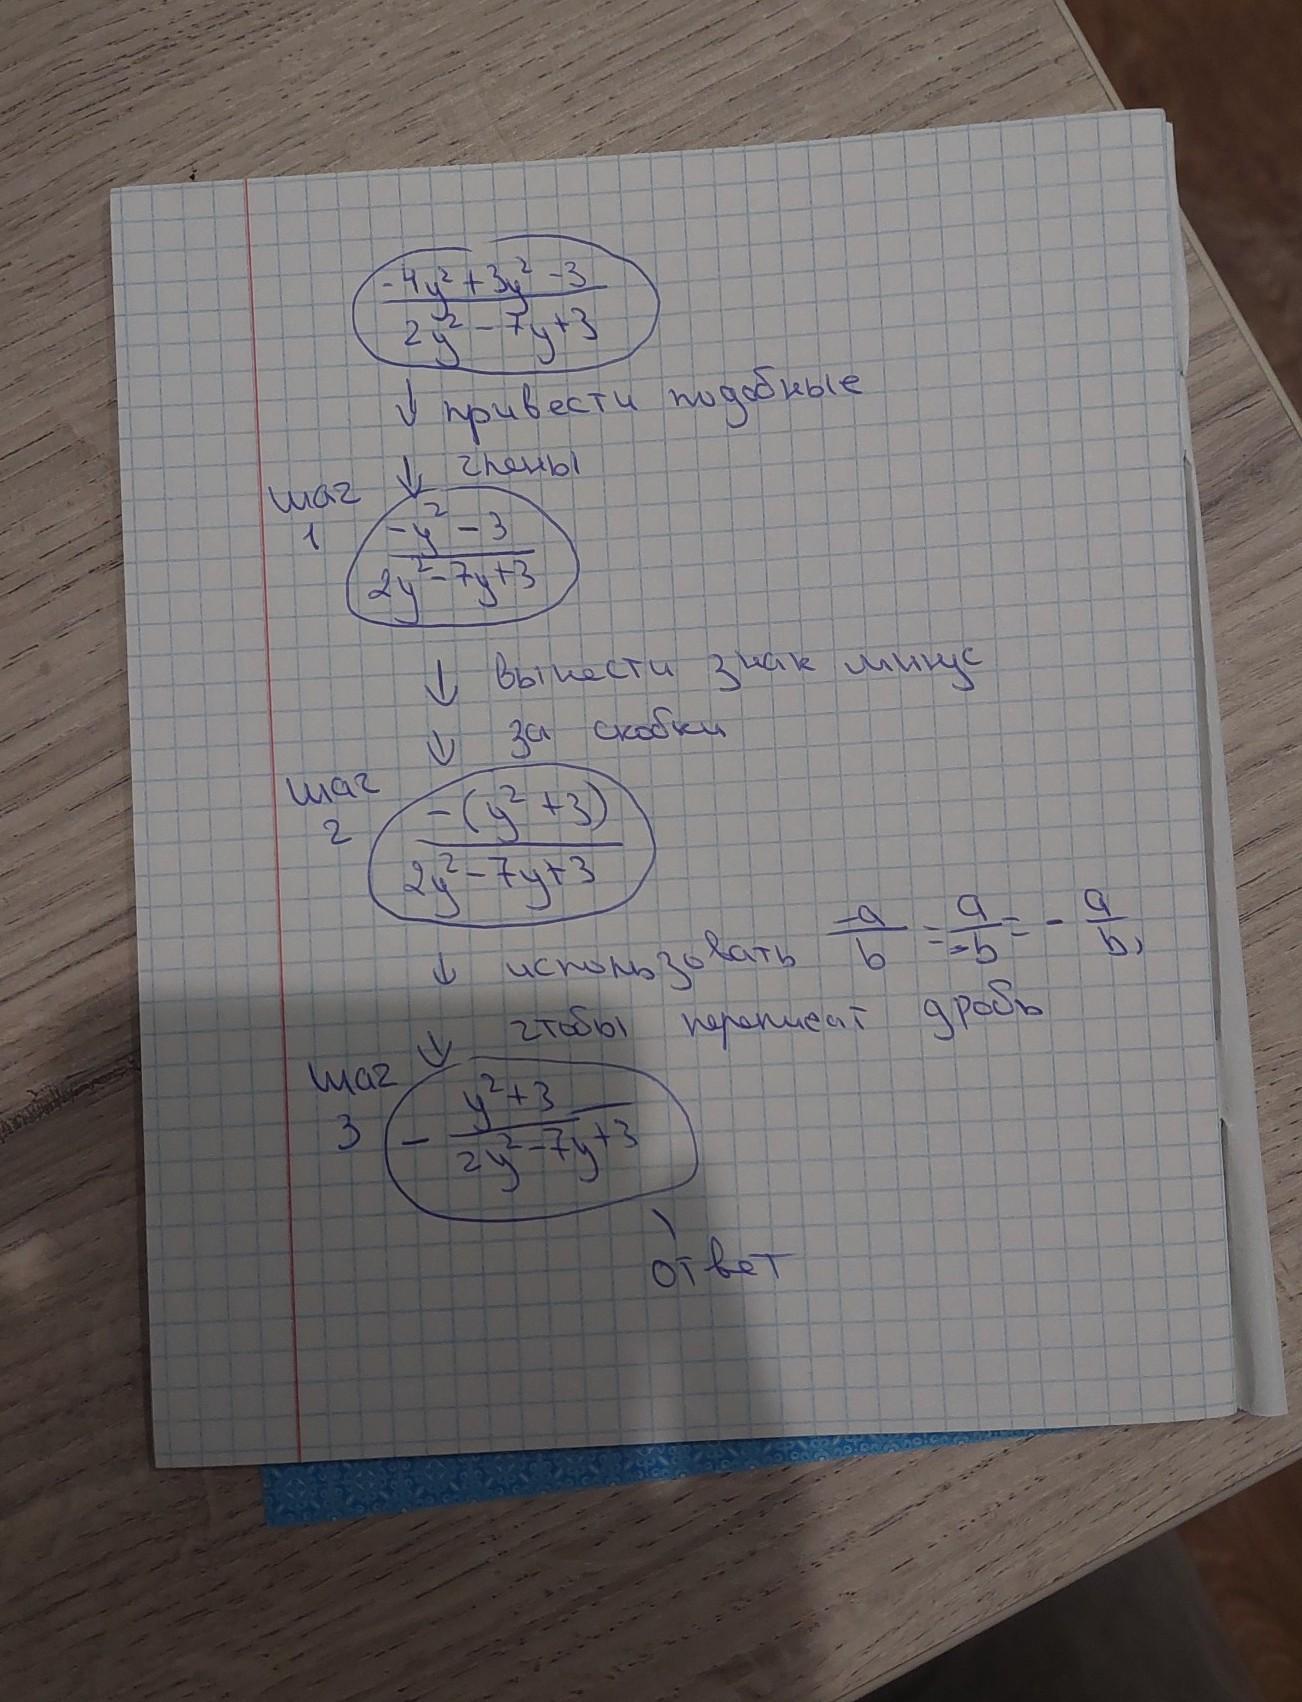 -4y² + 3y² - 3
2y² - 7y + 3
↓ привести подобные
↓ члены
шаг
1
-y² - 3
2y² - 7y + 3
↓ вынести знак минус
↓ за скобки
шаг
2
-(y² + 3)
2y² - 7y + 3
↓ использовать -a/b = a/-b = - a/b,
↓ чтобы переписат дробь
шаг
3
- y² + 3
2y² - 7y + 3
ответ